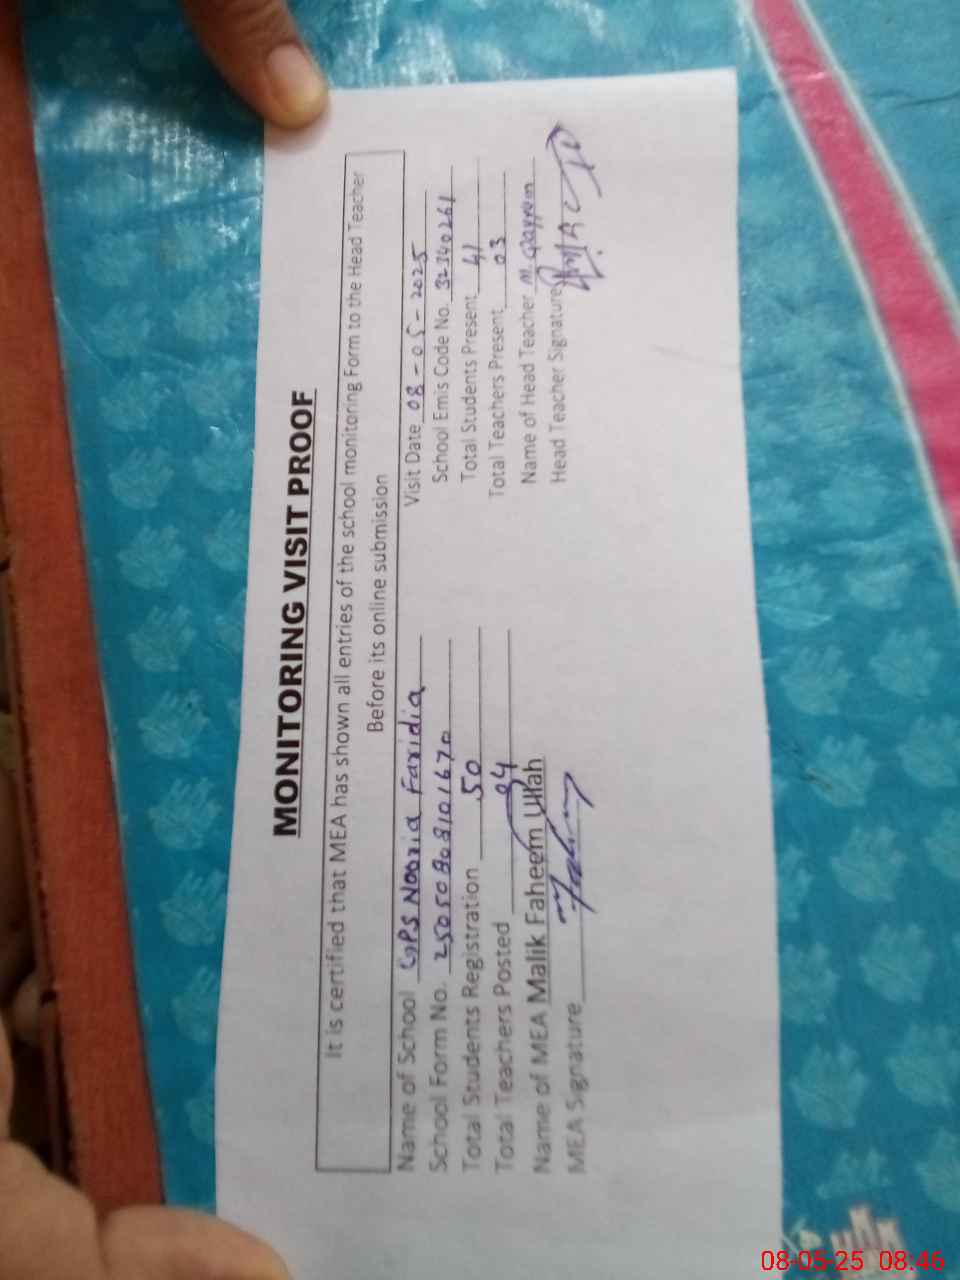 MONITORING VISIT PROOF
It is certified that MEA has shown all entries of the school monitoring Form to the Head Teacher
Before its online submission
Name of School GPS Nooria Faridia Visit Date 08-05-2025
School Form No. 25050808101670 School Emis Code No. 32340261
Total Students Registration 50 Total Students Present 41
Total Teachers Posted 04 Total Teachers Present 03
Name of MEA Malik Faheem Ullah Name of Head Teacher M. Qayyum
MEA Signature Head Teacher Signature
08-05-25 08:46